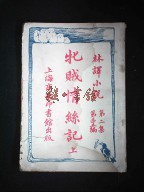 林譯小說
第二集
第壱編
牝賊情絲記 上
上海商務印書館出版